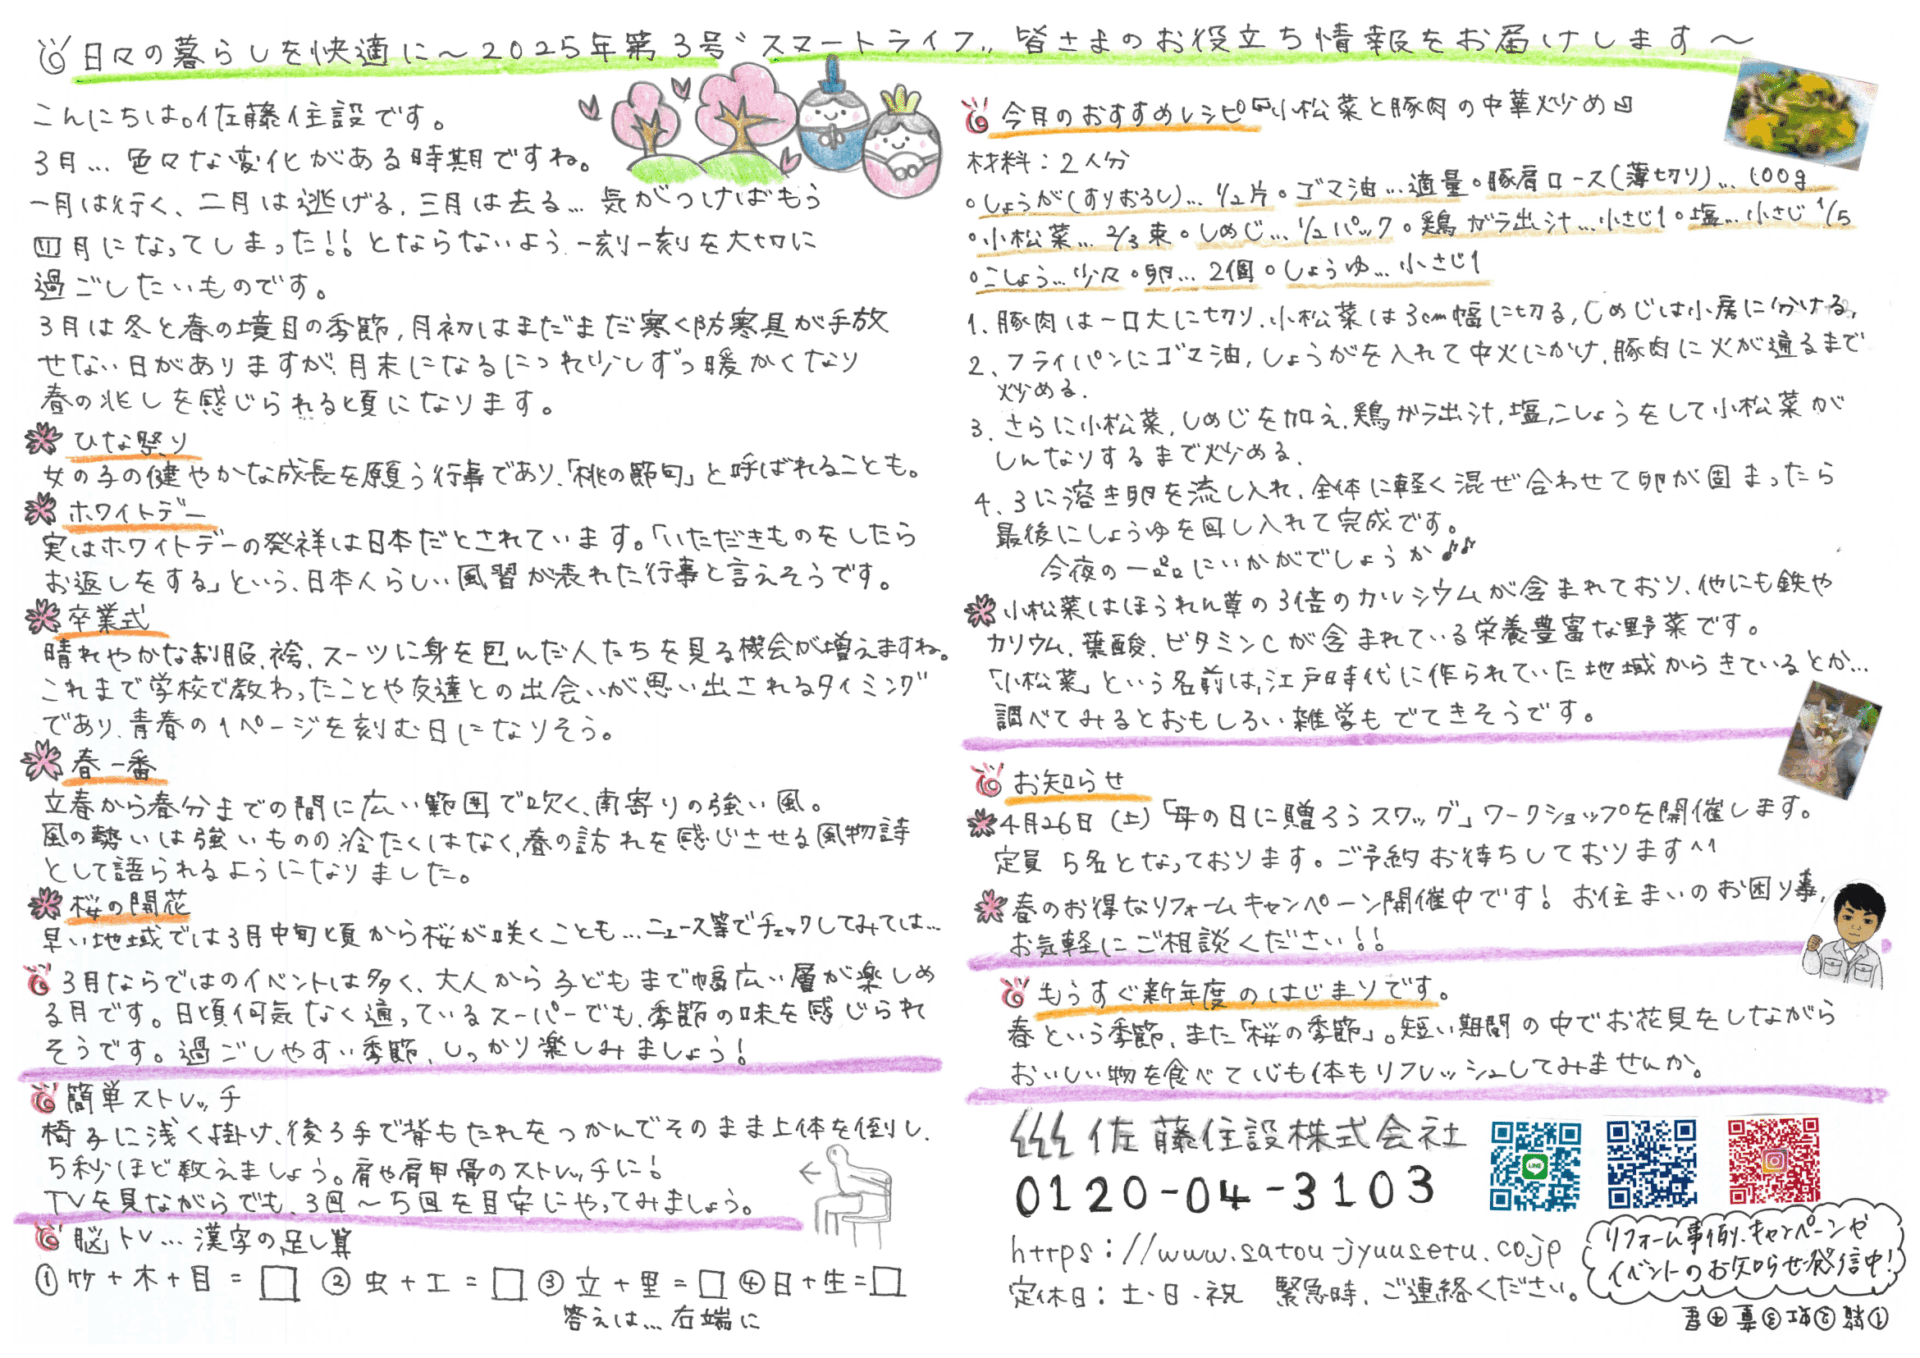 日々の暮らしを快適に～2025年第3号〝スマートライフ〟皆さまのお役立ち情報をお届けします～
こんにちは。佐藤住設です。
3月…色々な変化がある時期ですね。
一月は行く、二月は逃げる、三月は去る…気がつけばもう
四月になってしまった!!とならないよう、一刻一刻を大切に
過ごしたいものです。
3月は冬と春の境目の季節,月初はまだまだ寒く防寒具が手放
せない日がありますが、月末になるにつれ少しずつ暖かくなり
春の兆しを感じられる頃になります。
ひな祭り
女の子の健やかな成長を願う行事であり、「桃の節句」と呼ばれることも。
ホワイトデー
実はホワイトデーの発祥は日本だとされています。「いただきものをしたら
お返しをする」という、日本人らしい風習が表れた行事と言えそうです。
卒業式
晴れやかな制服、袴、スーツに身を包んだ人たちを見る機会が増えますね。
これまで学校で教わったことや友達との出会いが思い出されるタイミング
であり、青春の1ページを刻む日になりそう。
春一番
立春から春分までの間に広い範囲で吹く、南寄りの強い風。
風の勢いは強いものの、冷たくはなく、春の訪れを感じさせる風物詩
として語られるようになりました。
桜の開花
早い地域では3月中旬頃から桜が咲くことも…ニュース等でチェックしてみては…
3月ならではのイベントは多く、大人から子どもまで幅広い層が楽しめ
る月です。日頃何気なく通っているスーパーでも、季節の味を感じられ
そうです。過ごしやすい季節、しっかり楽しみましょう!
簡単ストレッチ
椅子に浅く掛け、後ろ手で背もたれをつかんでそのまま上体を倒し、
5秒ほど数えましょう。肩や肩甲骨のストレッチに!
TVを見ながらでも、3回～5回を目安にやってみましょう。
脳トレ…漢字の足し算
①竹+木+目=□ ②虫+工=□ ③立+里=□ ④日+生=□
答えは…右端に
今月のおすすめレシピ『小松菜と豚肉の中華炒め』
材料:2人分
◦しょうが(すりおろし)…1/2片 ◦ゴマ油…適量 ◦豚肩ロース(薄切り)…100g
◦小松菜…2/3束 ◦しめじ…1/2パック ◦鶏ガラ出汁…小さじ1 ◦塩…小さじ1/5
◦こしょう…少々 ◦卵…2個 ◦しょうゆ…小さじ1
1、豚肉は一口大に切り、小松菜は3cm幅に切る,しめじは小房に分ける,
2、フライパンにゴマ油,しょうがを入れて中火にかけ、豚肉に火が通るまで
炒める.
3、さらに小松菜,しめじを加え、鶏ガラ出汁,塩,こしょうをして小松菜が
しんなりするまで炒める.
4、3に溶き卵を流し入れ、全体に軽く混ぜ合わせて卵が固まったら
最後にしょうゆを回し入れて完成です。
今夜の一品にいかがでしょうか♪♪
小松菜はほうれん草の3倍のカルシウムが含まれており、他にも鉄や
カリウム、葉酸、ビタミンCが含まれている栄養豊富な野菜です。
「小松菜」という名前は、江戸時代に作られていた地域からきているとか…
調べてみるとおもしろい雑学もでてきそうです。
お知らせ
4月26日(土)「母の日に贈ろうスワッグ」ワークショップを開催します。
定員5名となっております。ご予約お待ちしております^^
春のお得なリフォームキャンペーン開催中です! お住まいのお困り事,
お気軽にご相談ください!!
もうすぐ新年度のはじまりです。
春という季節、また「桜の季節」。短い期間の中でお花見をしながら
おいしい物を食べて心も体もリフレッシュしてみませんか。
佐藤住設株式会社
0120-04-3103
LINE
https://www.satou-jyuusetu.co.jp
定休日:土・日・祝 緊急時、ご連絡ください。
リフォーム事例、キャンペーンや
イベントのお知らせ発信中!
①箱②虹③童④星